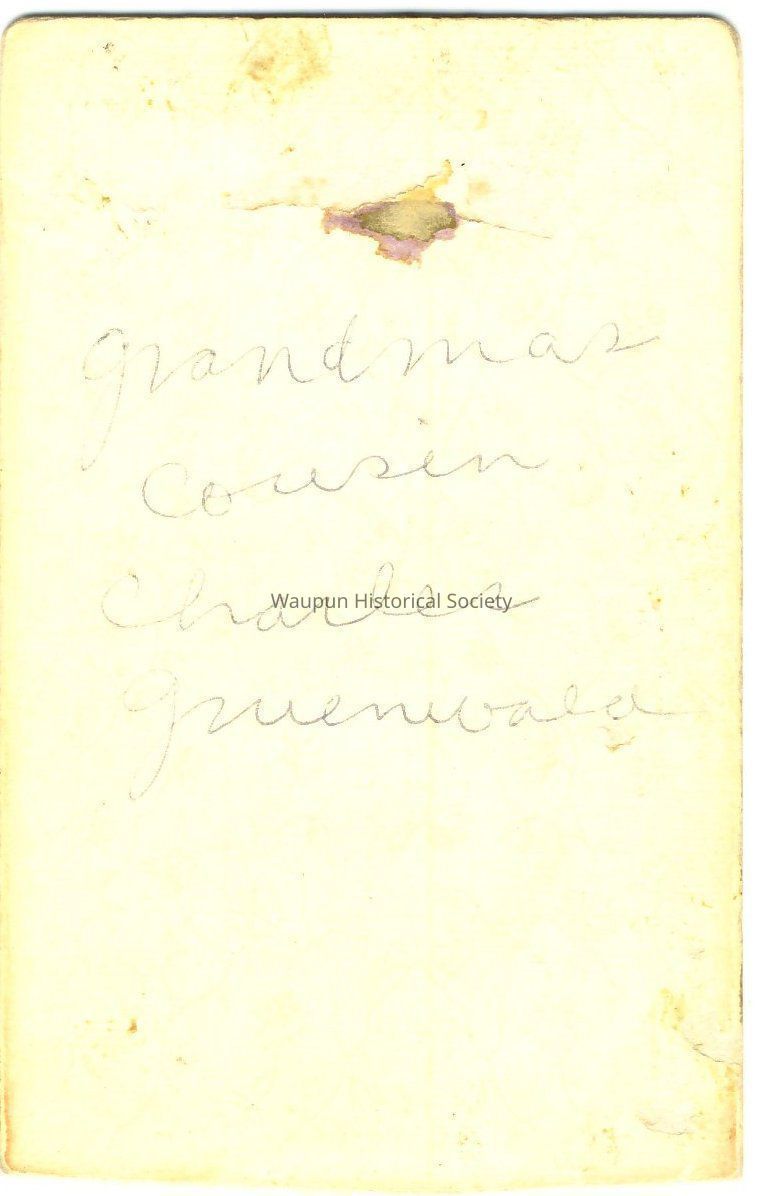 Grandmas
Cousin
Charles
Waupun Historical Society
Gruenwald